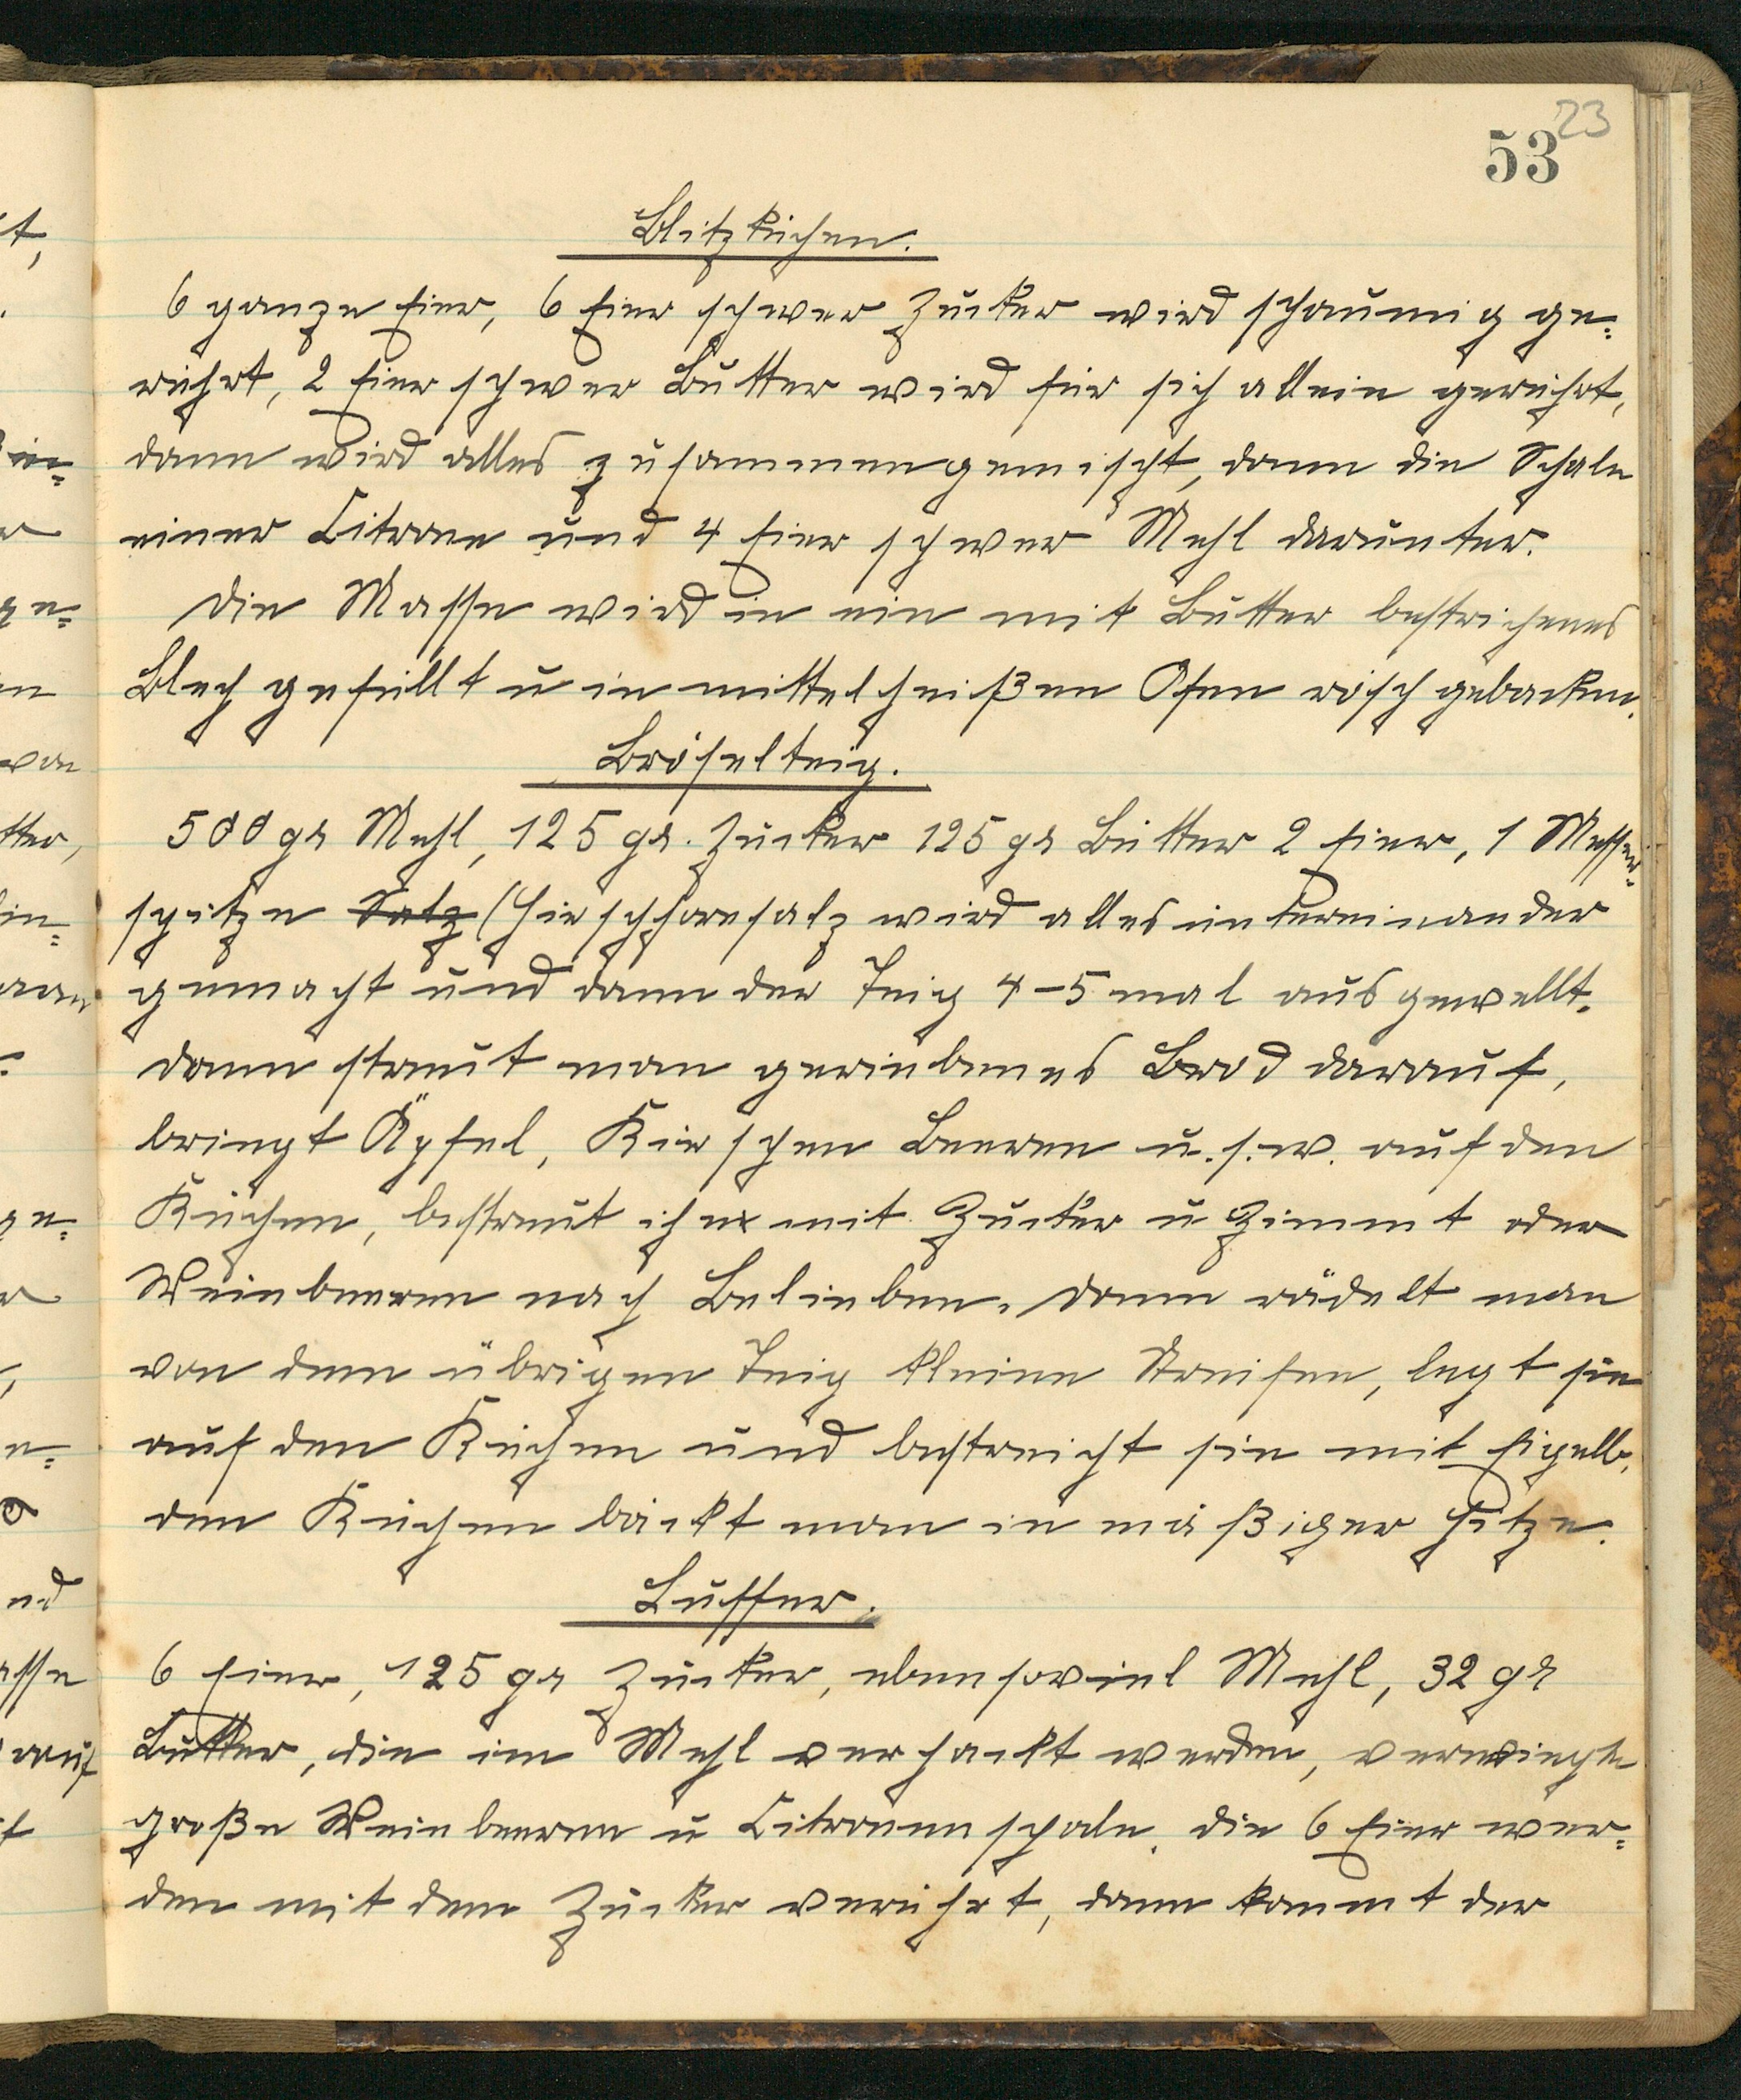 23
53
Blitzkuchen.
6 ganze Eier, 6 Eier schwer Zucker wird schaumig ge-
rührt, 2 Eier schwer Butter wird für sich allein gerührt,
dann wird alles zusammengemischt, dann die Schale
einer Citrone und 4 Eier schwer Mehl darunter.
Die Masse wird in ein mit Butter bestrichenes
Blech gefüllt u in mittelheißen Ofen rösch gebacken.
Bröselteig.
500 gr Mehl, 125 gr. Zucker 125 gr Butter 2 Eier, 1 Messer-
spitze Salz (Hirschhornsalz wird alles untereinander
gemacht und dann der Teig 4-5 mal ausgewellt.
Dann streut man geriebenes Brod darauf,
bringt Äpfel, Kirschen Beeren u.s.w. auf den
Kuchen, bestreut ihn mit Zucker u Zimmt oder
Weinbeeren nach Belieben. Dann rädelt man
von dem übrigen Teig kleine Streifen, legt sie
auf den Kuchen und bestreicht sie mit Eigelb,
den Kuchen bäckt man in mäßiger Hitze.
Luffer.
6 Eier, 125 gr Zucker, ebensoviel Mehl, 32 gr
Butter, die im Mehl verhackt werden, verwiegte
große Weinbeeren u Citronenschale. Die 6 Eier wer-
den mit dem Zucker verührt, dann kommt der